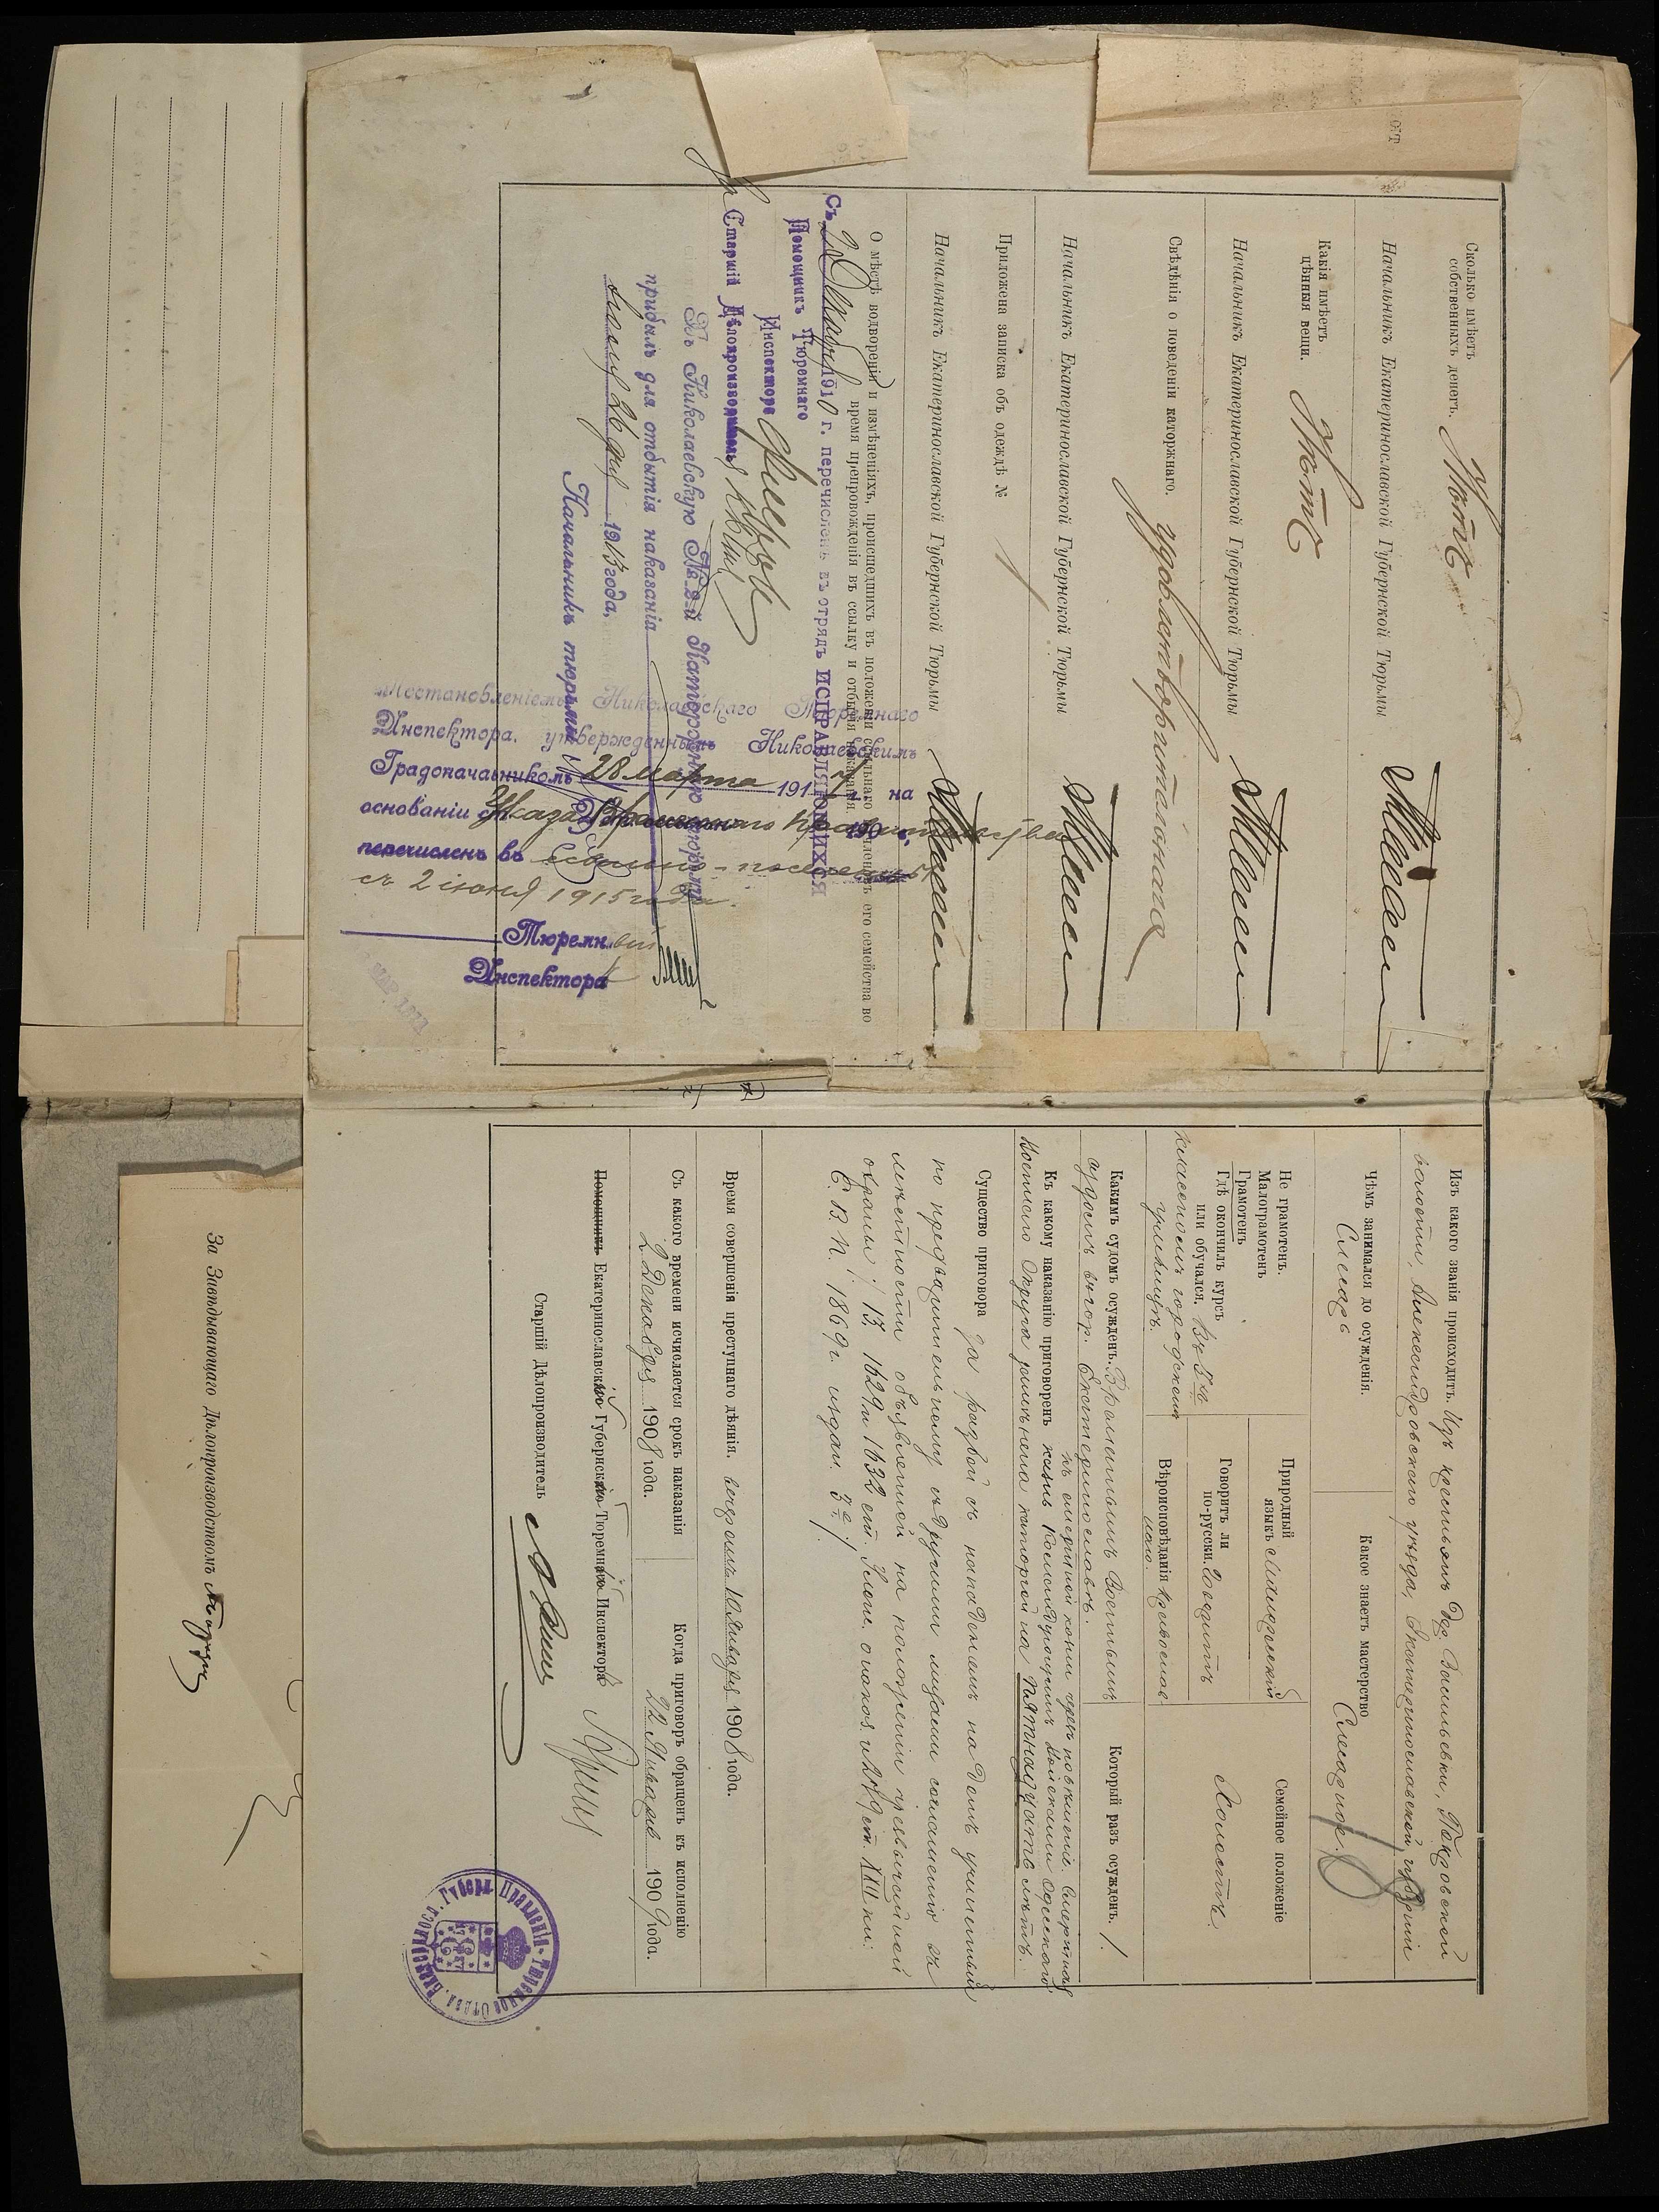 Сколько имѣетъ
собственныхъ денегъ.
Начальникъ Екатеринославской Губернской Тюрьмы
Какія имѣетъ
цѣнныя вещи.
Начальникъ Екатеринославской Губернской Тюрьмы
Свѣдѣнія о поведеніи каторжнаго. удовлетворительнаго
Начальникъ Екатеринославской Губернской Тюрьмы
Приложена записка объ одеждѣ №
Начальникъ Екатеринославской Губернской Тюрьмы
О мѣстѣ водворенія и измѣненіяхъ, происшедшихъ въ положеніи ссыльнаго его семейства во
время препровожденія въ ссылку и отбытія наказанія
Съ 2 Декабря 1910 г. перечисленъ въ отрядъ ИСПРАВЛЯЮЩИХСЯ
Помощникъ Тюремнаго
Инспектора
Старшій Дѣлопроизводитель
Въ Николаевскую № 2й Каторжную тюрьму
прибылъ для отбытія наказанія
26 дня 1913 года.
Начальникъ тюрьмы
Постановленіемъ Николаевскаго Тюремнаго
Инспектора, утвержденнымъ Николаевскимъ
Градоначальникомъ 28 марта 1917 г. на
основаніи Указа Временнаго Правительства
перечисленъ въ ссыльно-поселенцы
съ 2 іюня 1915 года.
Тюремный
Инспекторъ
Изъ какого званія происходитъ. Изъ крестьянъ дер. Васильевки, Покровской
волости, Александровскаго уѣзда, Екатеринославской губерніи
Чѣмъ занимался до осужденія.
Слесарь
Какое знаетъ мастерство
Слесарное.
Не грамотенъ.
Малограмотенъ
Грамотенъ
Гдѣ окончилъ курсъ
или обучался. Въ 5мъ
классномъ городскомъ
училищѣ.
Природный
языкъ малорусскій
Говоритъ ли
по-русски. Говоритъ
Вѣроисповѣданія православ
наго.
Семейное положеніе
Холостъ.
Какимъ судомъ осужденъ. Временнымъ Военнымъ
судомъ въ гор. Екатеринославѣ.
Который разъ осужденъ. 1.
къ смертной казни чрезъ повѣшеніе. Смертная
Къ какому наказанію приговоренъ казнь Командующимъ Войсками Одесскаго
Военнаго Округа замѣнена каторгой на пятнадцать лѣтъ.
Существо приговора за разбой съ нападеніемъ на домъ учиненный
по предварительному съ другими лицами соглашенію въ
мѣстности объявленной на положеніи чрезвычайной
охраны / 13, 1629 и 1632 ст. Улож. о наказ. и 279 ст. XXII кн.
С. В. П. 1869 г. издан. 3е /.
Время совершенія преступнаго дѣянія. вечеромъ 10 Января 1908 года.
Съ какого времени исчисляется срокъ наказанія
2 Декабря 1908 года.
Когда приговоръ обращенъ къ исполненію
22 Января 1909 года.
Помощникъ Екатеринославскій Губернскій Тюремный Инспекторъ
Старшій Дѣлопроизводитель
Екатериносл. Губерн. Правленія. Тюремное Отдѣл.
За Завѣдывающаго Дѣлопроизводствомъ